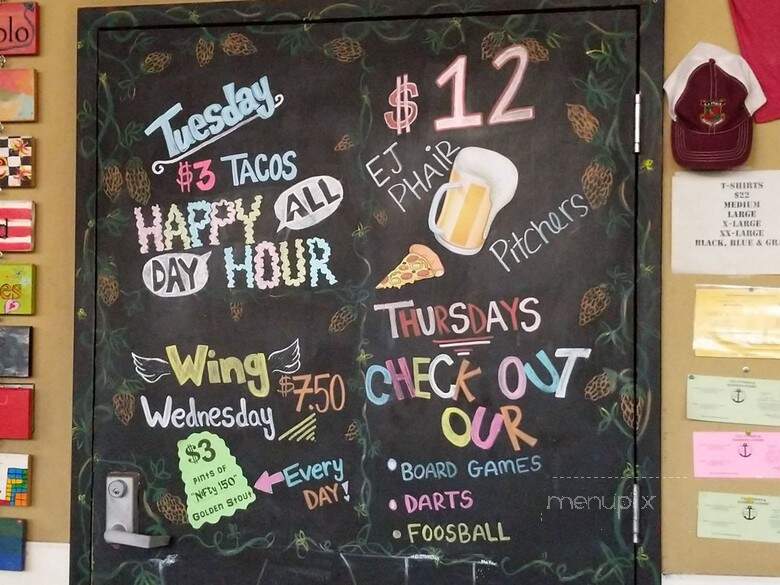 Tuesday
$3 TACOS
HAPPY ALL
DAY HOUR
Wing
Wednesday $7.50
$3
PINTS OF
"Nifty 150"
Golden Stout
Every
DAY!
$12
EJ
PHAIR
Pitchers
THURSDAYS
CHECK OUT
OUR
• BOARD GAMES
• DARTS
• FOOSBALL
T-SHIRTS
$22
MEDIUM
LARGE
X-LARGE
XX-LARGE
BLACK, BLUE & GR
menupix